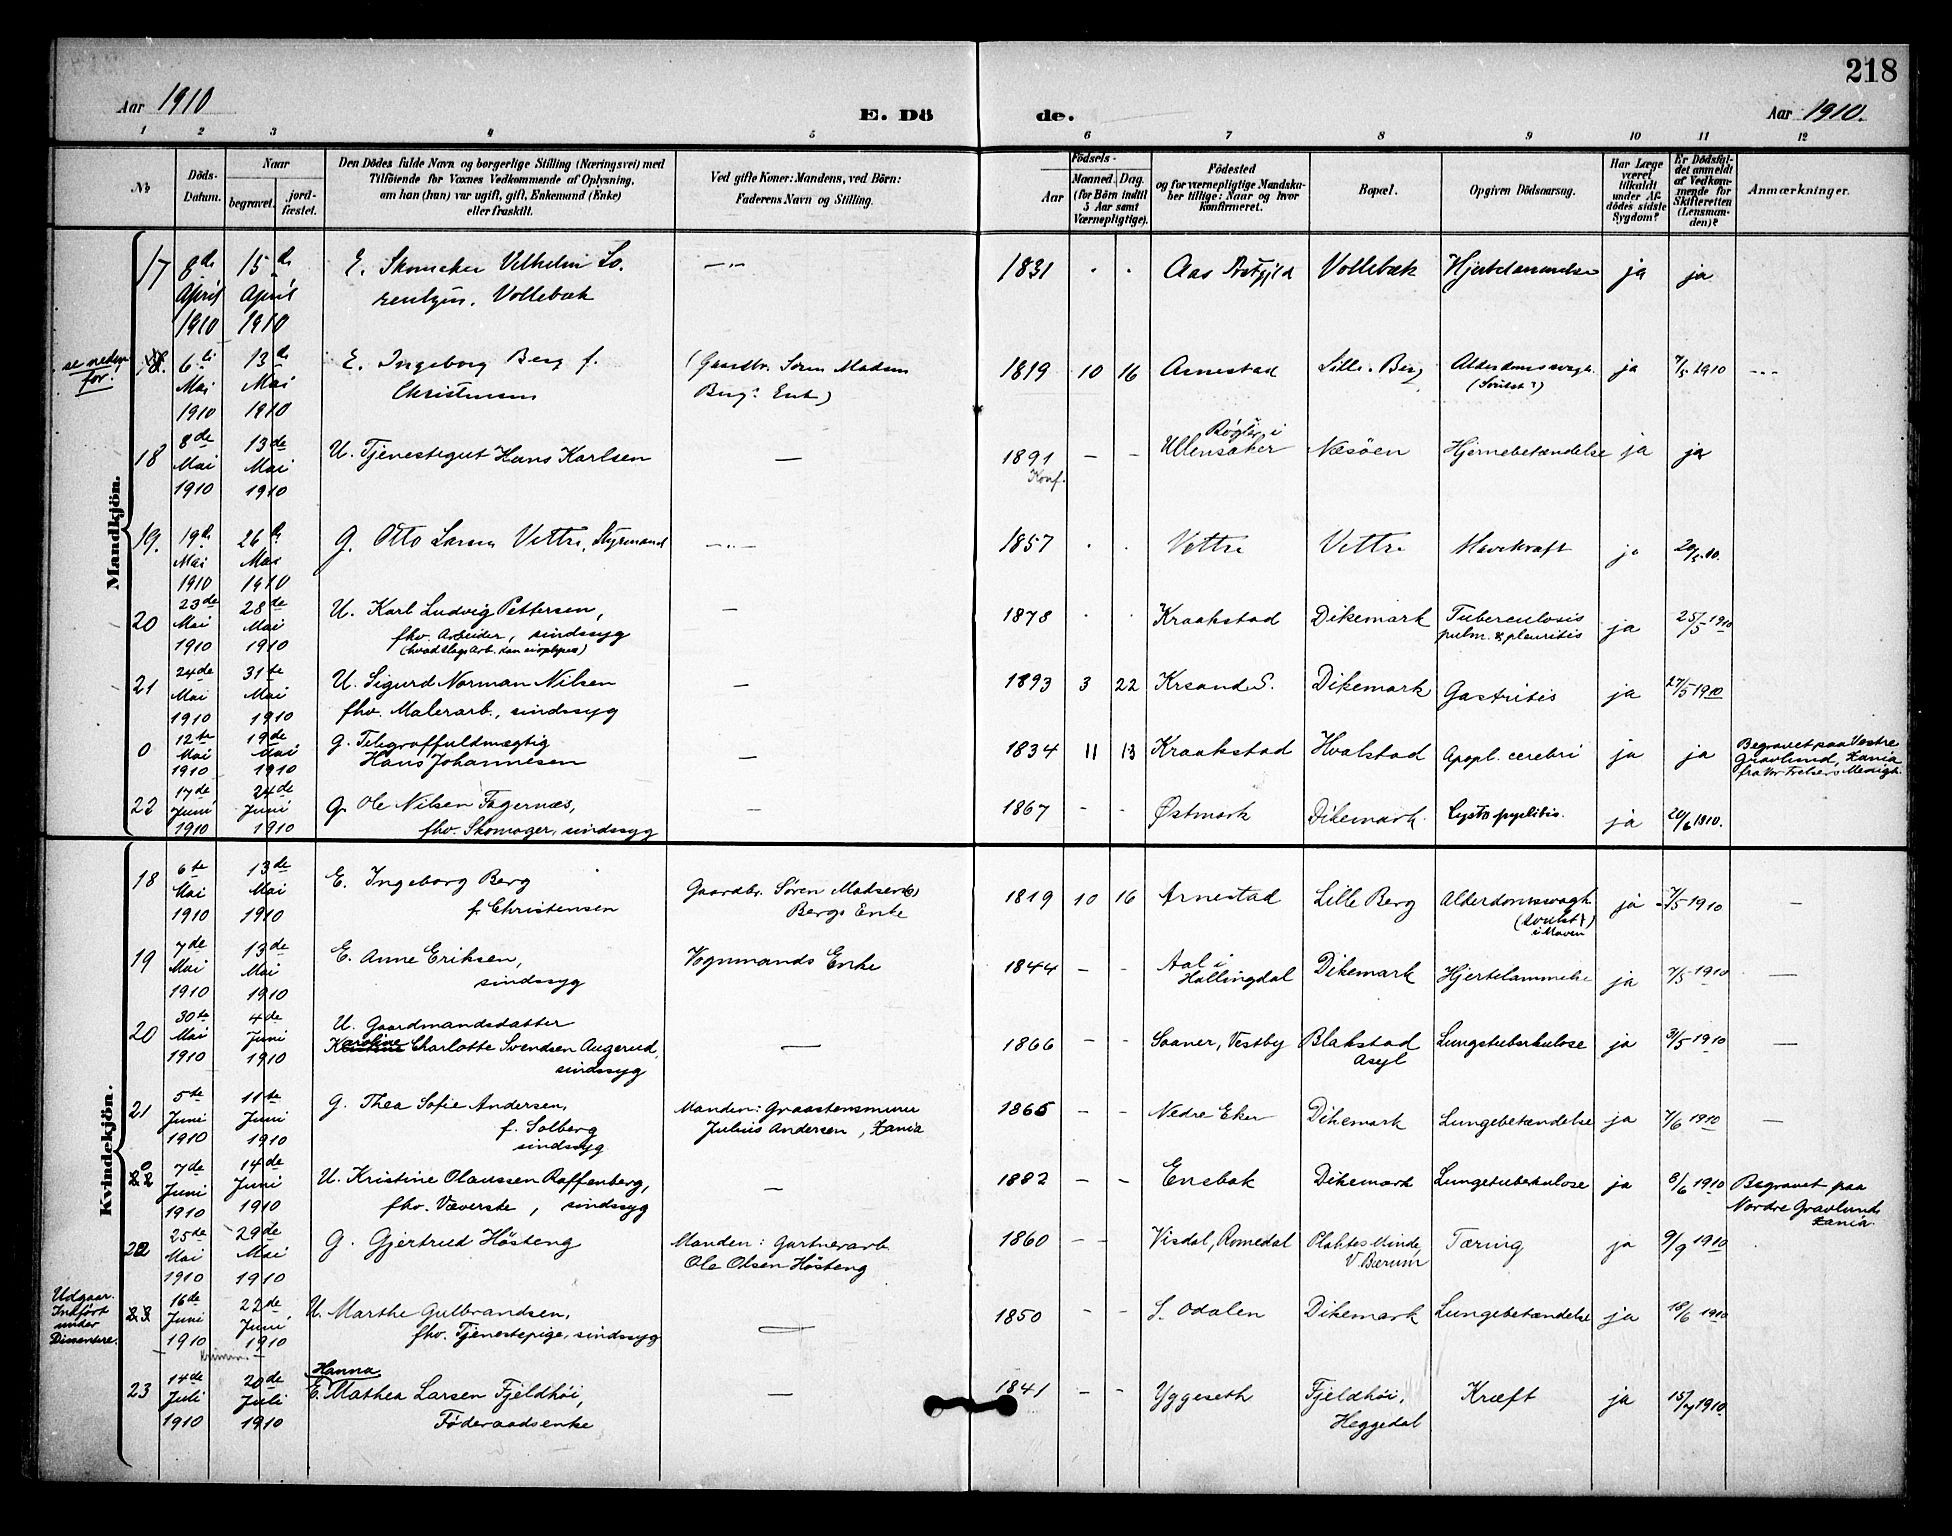 218
Aar 1910
E. Dö
de.
Aar 1910.
1 2 3 4 5 6 7 8 9 10 11 12
No
Döds-
Datum.
Naar
begravet.
jord-
fæstet.
Den Dödes fulde Navn og borgerlige Stilling (Næringsvei) med
Tilföiende for Voxnes Vedkommende af Oplysning,
om han (hun) var ugift, gift, Enkemand (Enke)
eller fraskilt.
Ved gifte Koner: Mandens, ved Börn:
Faderens Navn og Stilling.
Födsels-
Aar
Maaned. Dag.
(for Börn indtil
5 Aar samt
Værnepligtige).
Födested
og for værnepligtige Mandska-
ber tillige: Naar og hvor
konfirmeret.
Bopæl.
Opgiven Dödsaarsag.
Har Læge
været
tilkaldt
under Af-
dödes sidste
Sygdom?
Er Dödsfal-
det anmeldt
af Vedkom-
mende for
Skifteretten
(Lensman-
den)?
Anmærkninger.
Mandkjön.
17 8de April 1910 15de April 1910 E. Skomaker Vilhelm Lo.
rentzen. Vollebæk
1831 Aas Vollebæk ja ja
se neden
for:
6te Mai 1910 13de Mai 1910 E. Ingeborg Berg f.
Christensen
(Gaardbr. Søren Madsen
Bergs Enke)
1819 10 16 Arnestad Lille Berg ja 7/5 1910
18 8de Mai 1910 13de Mai 1910 U. Tjenestegut Hans Karlsen — 1891 Konf. – – i Ullensaker Næsöen Hjernebetændelse ja ja
19. 19de Mai 1910 26de Mai 1910 G. Otto Larsen Vettre, Styrmand
1857 Vettre Vettre Mavekræft ja 20/5.10.
20 23de Mai 1910 28de Mai 1910 U. Karl Ludvig Pettersen,
fhv. Arbeider, sindssyg
— 1878 Kraakstad Dikemark Tuberculosis
pulm. & pleuritis ja 25/5 1910
21 24de Mai 1910 31te Mai 1910 U. Sigurd Norman Nilsen
fhv. Malerarb., sindssyg
— 1893 3 22 Krsand S. Dikemark Gastritis ja 27/5 1910
0 12te Mai 1910 19de Mai 1910 G. Telegraffuldmægtig
Hans Johannesen
— 1834 11 13 Kraakstad Hvalstad Apopl. cerebri ja ja Begravet paa Vestre
Gravlund, Xania
fra Vor Frelsers Menigh.
22 17de Juni 1910 24de Juni 1910 G. Ole Nilsen Fagernæs,
fhv. Skomager, sindssyg
— 1867 – – Østmark Dikemark ja 20/6 1910.
Kvindekjön.
18 6te Mai 1910 13de Mai 1910 E. Ingeborg Berg
f. Christensen
Gaardbr. Søren Madsen
Bergs Enke
1819 10 16 Arnestad Lille Berg Alderdomssvagh.
(Svulst?)
i Maven ja 7/5 1910 –
19 7de Mai 1910 13de Mai 1910 E. Anne Eriksen,
sindssyg
Vognmands Enke
1844 – – Aal i
Hallingdal Dikemark Hjertelammelse ja 7/5 1910 —
20 30te Mai 1910 4de Juni 1910 U. Gaardmandsdatter
Karoline Charlotte Svendsen Augerud,
sindssyg
— 1866 – – Soaner, Vestby Blakstad
Asyl Lungetuberkulose ja 31/5 1910 —
21 5te Juni 1910 11te Juni 1910 G. Thea Sofie Andersen,
f. Solberg
sindssyg
Manden: Graastensminer
Julius Andersen, Xania
1865 – – Nedre Eker Dikemark Lungebetændelse ja 7/6 1910 —
0 22 7de Juni 1910 14de Juni 1910 U. Kristine Olaussen Roffenberg,
fhv. Væverske, sindssyg
— 1882 – – Enebak Dikemark Lungetuberkulose ja 8/6 1910 Begravet paa
Nordre Gravlund
Xania.
22 25de Mai 1910 29de Mai 1910 G. Gjertrud Hösteng
Manden: Gartnerarb.
Ole Olsen Hösteng
1860 – – Visdal, Romedal Minde,
V. Bærum Tæring ja 9/9 1910
Udgaar.
Indført
under
Dissentere.
23 16de Juni 1910 22de Juni 1910 U. Marthe Gulbrandsen,
fhv. Tjenestepige, sindssyg
— 1850 – – S. Odalen Dikemark Lungebetændelse ja 18/6 1910
23 14de Juli 1910 20de Juli 1910 Hanna
E. Mathea Larsen Fjeldhöi,
Föderaadsenke
— 1841 – – Yggeseth Fjeldhöi,
Heggedal Kræft ja 15/7 1910